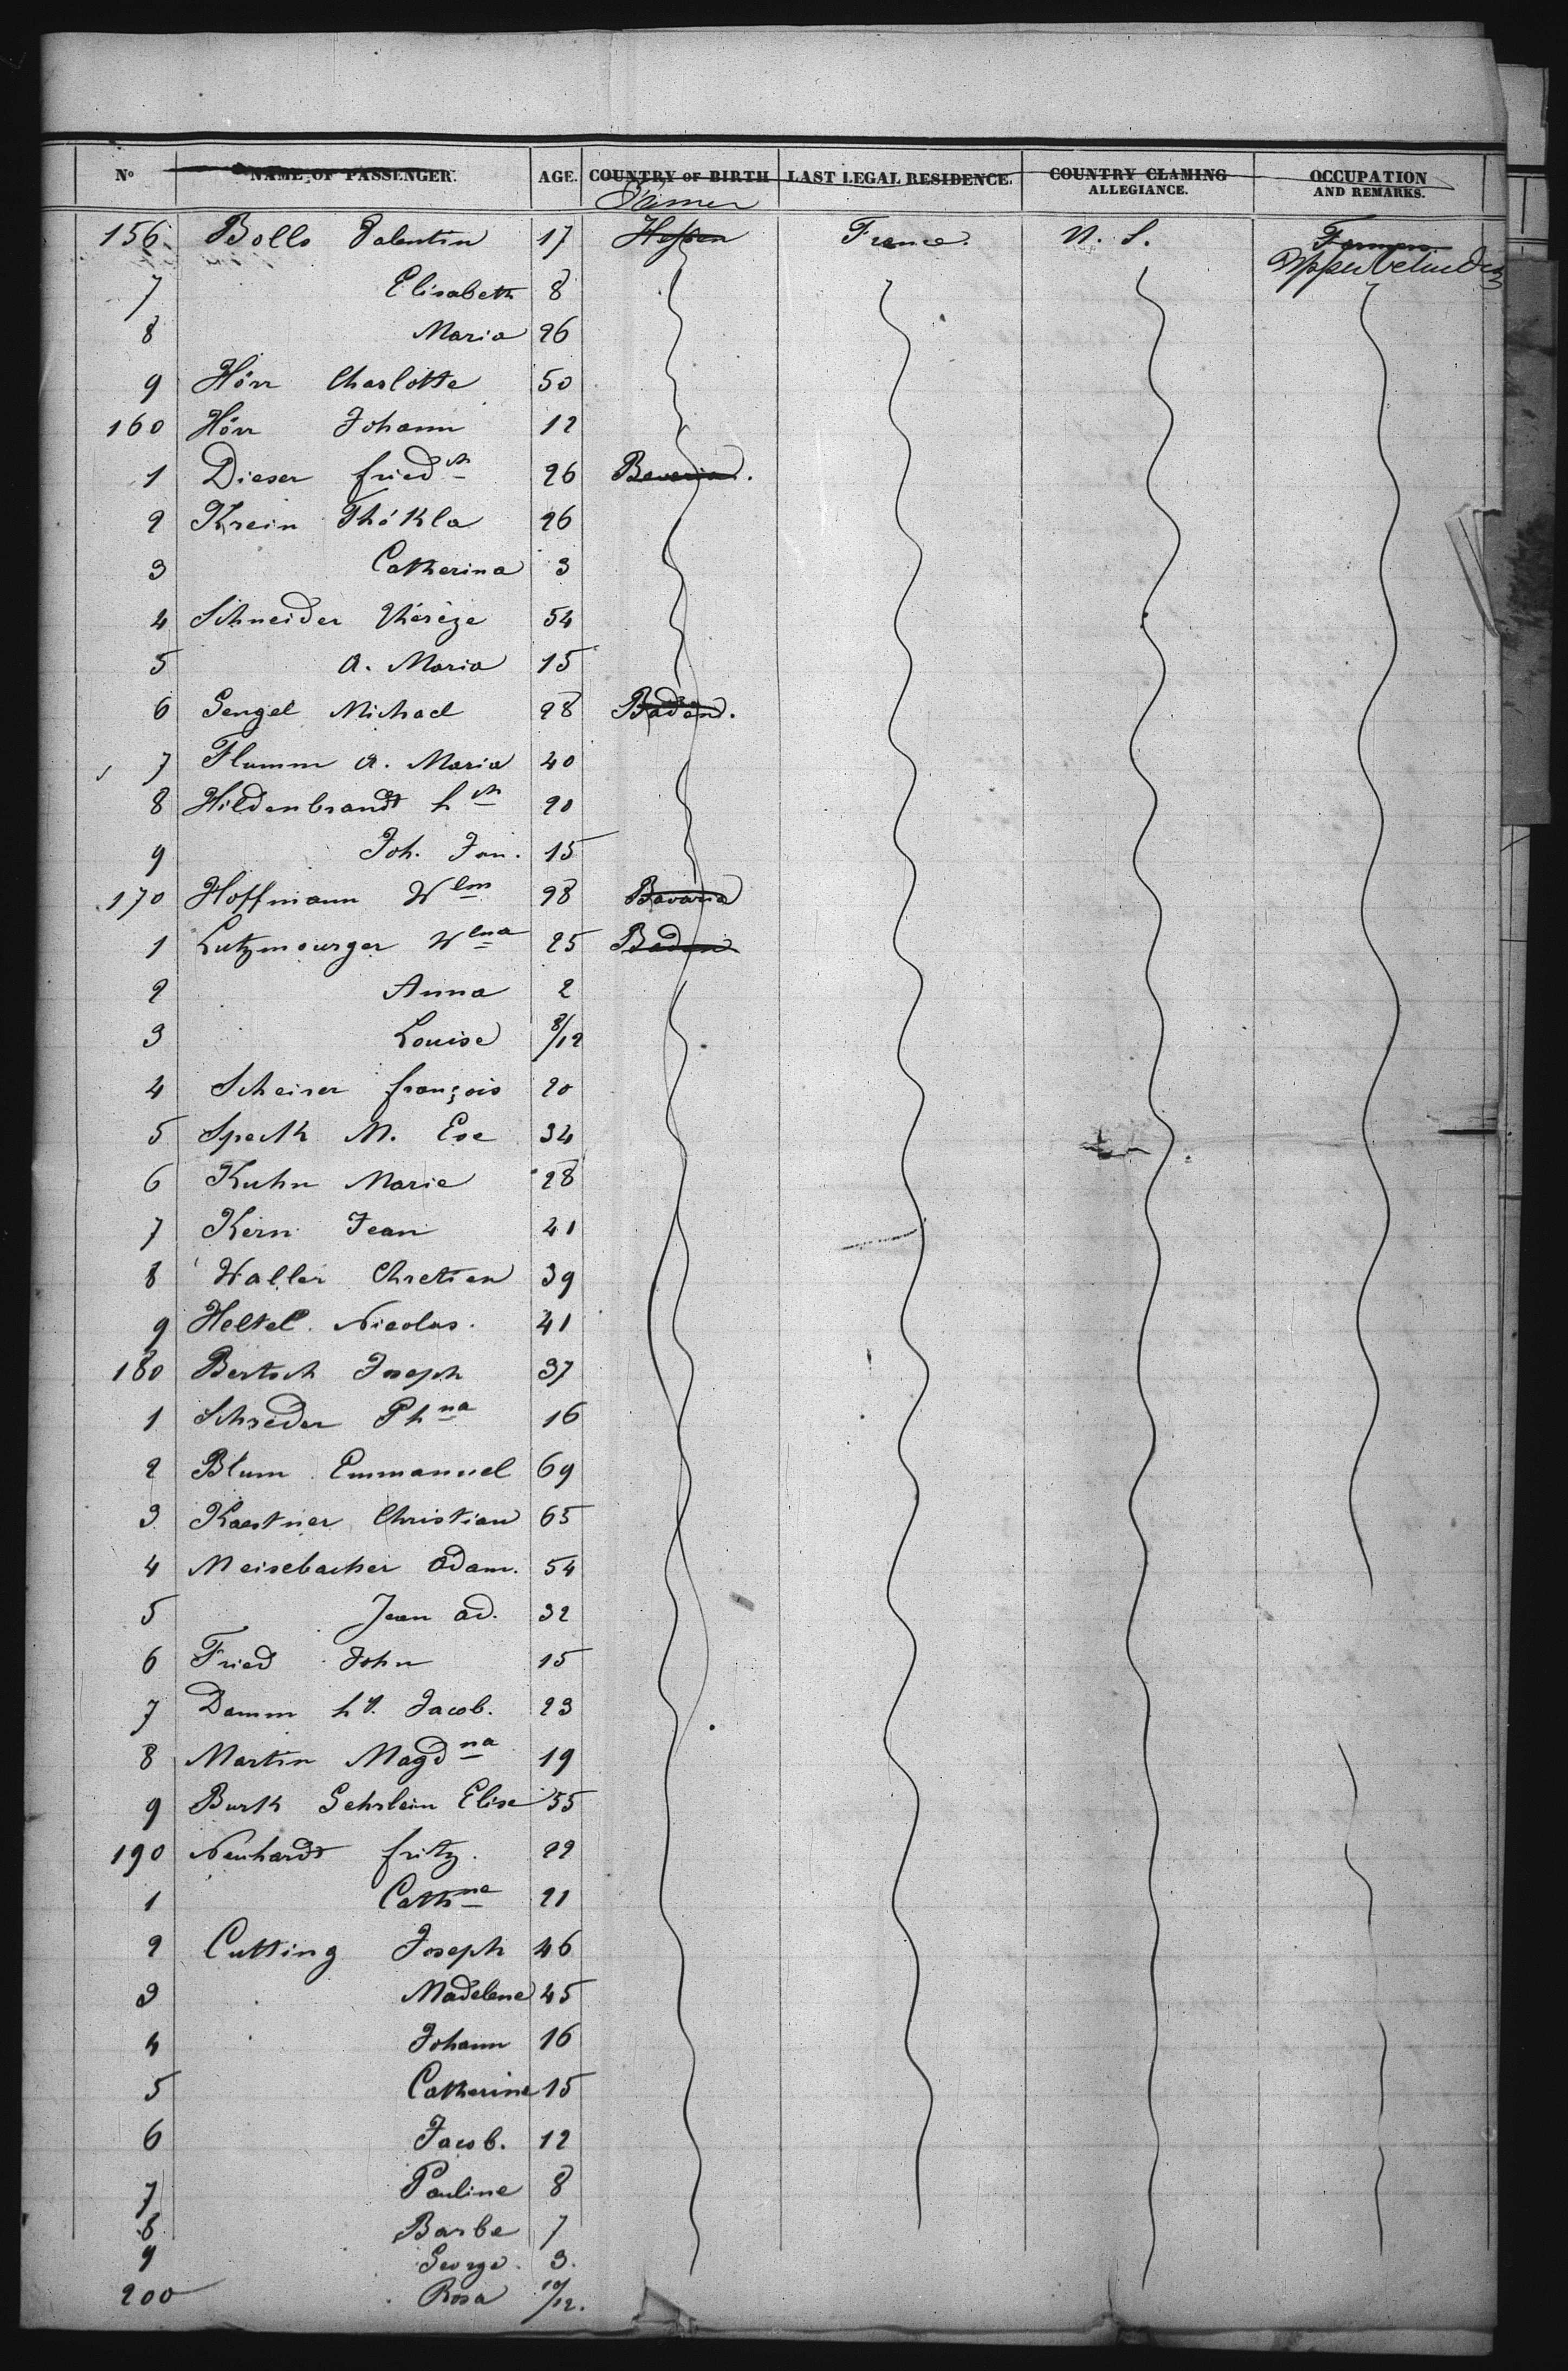 Nº NAME OF PASSENGER. AGE. COUNTRY OF BIRTH LAST LEGAL RESIDENCE. COUNTRY CLAMING ALLEGIANCE. OCCUPATION AND REMARKS.
156 Bolls Valentin 17 Hessen France. U. S. Farmers
7 Elisabeth 8
8 Maria 26
9 Hörr Charlotte 50
160 Hörr Johann 12
1 Dieser fried ch 26 Bavaria.
2 Krein Thékla 26
3 Catherina 3
4 Schneider Thérèze 54
5 A. Maria 15
6 Gengel Michael 28 Baden.
7 Flumm A. Maria 40
8 Hildenbrandt h ch 20
9 Joh. Jon. 15
170 Hoffmann W lm 28 Bavaria
1 Lutzmourger W lna 25 Baden
2 Anna 2
3 Louise 8/12
4 Scheirer françois 20
5 Specth M. Eve 34
6 Kuhn Marie 28
7 Kern Jean 41
8 Waller Chretien 39
9 Heltel Nicolas. 41
180 Bertsch Joseph 37
1 Schreder Ph na 16
2 Blum Emmanuel 69
3 Kaestner Christian 65
4 Meisebacher Adam. 54
5 Jean Ad. 32
6 Fried John 15
7 Damm hy. Jacob. 23
8 Martin Magd na 19
9 Burth Gehrlein Elise 55
190 Neuhardt fritz. 22
1 Cath ne 21
2 Cutting Joseph 46
3 Madelene 45
4 Johann 16
5 Catherine 15
6 Jacob. 12
7 Pauline 8
8 Barbe 7
9 George. 3.
200 Rosa 10/12.